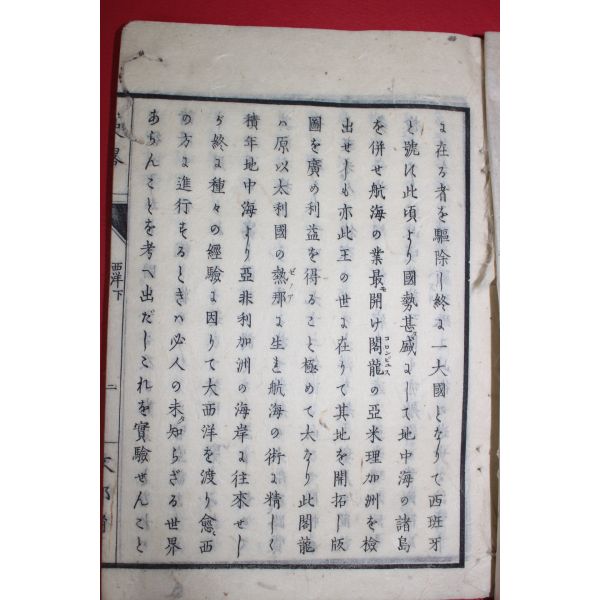 に在る者を驅除し終に一大國となりて西班牙
と號に此頃より國勢甚盛にして地中海の諸島
を併せ航海の業最モ開け閣龍コロンビュスの亞米理加洲を檢
出せしも亦此王の世に在りて其地を開拓し版
圖を廣め利益を得ること極めて大なり此閣龍
ハ原以太利國の熱那ゼノアに生れ航海の術に精しく
積年地中海より亞非利加洲の海岸に往來せし
が終に種々の經驗に因りて大西洋を渡り愈〻西
の方に進行するときハ必人の未知らざる世界
あらんことを考へ出だしこれを實驗せんこと
略
西洋下
二